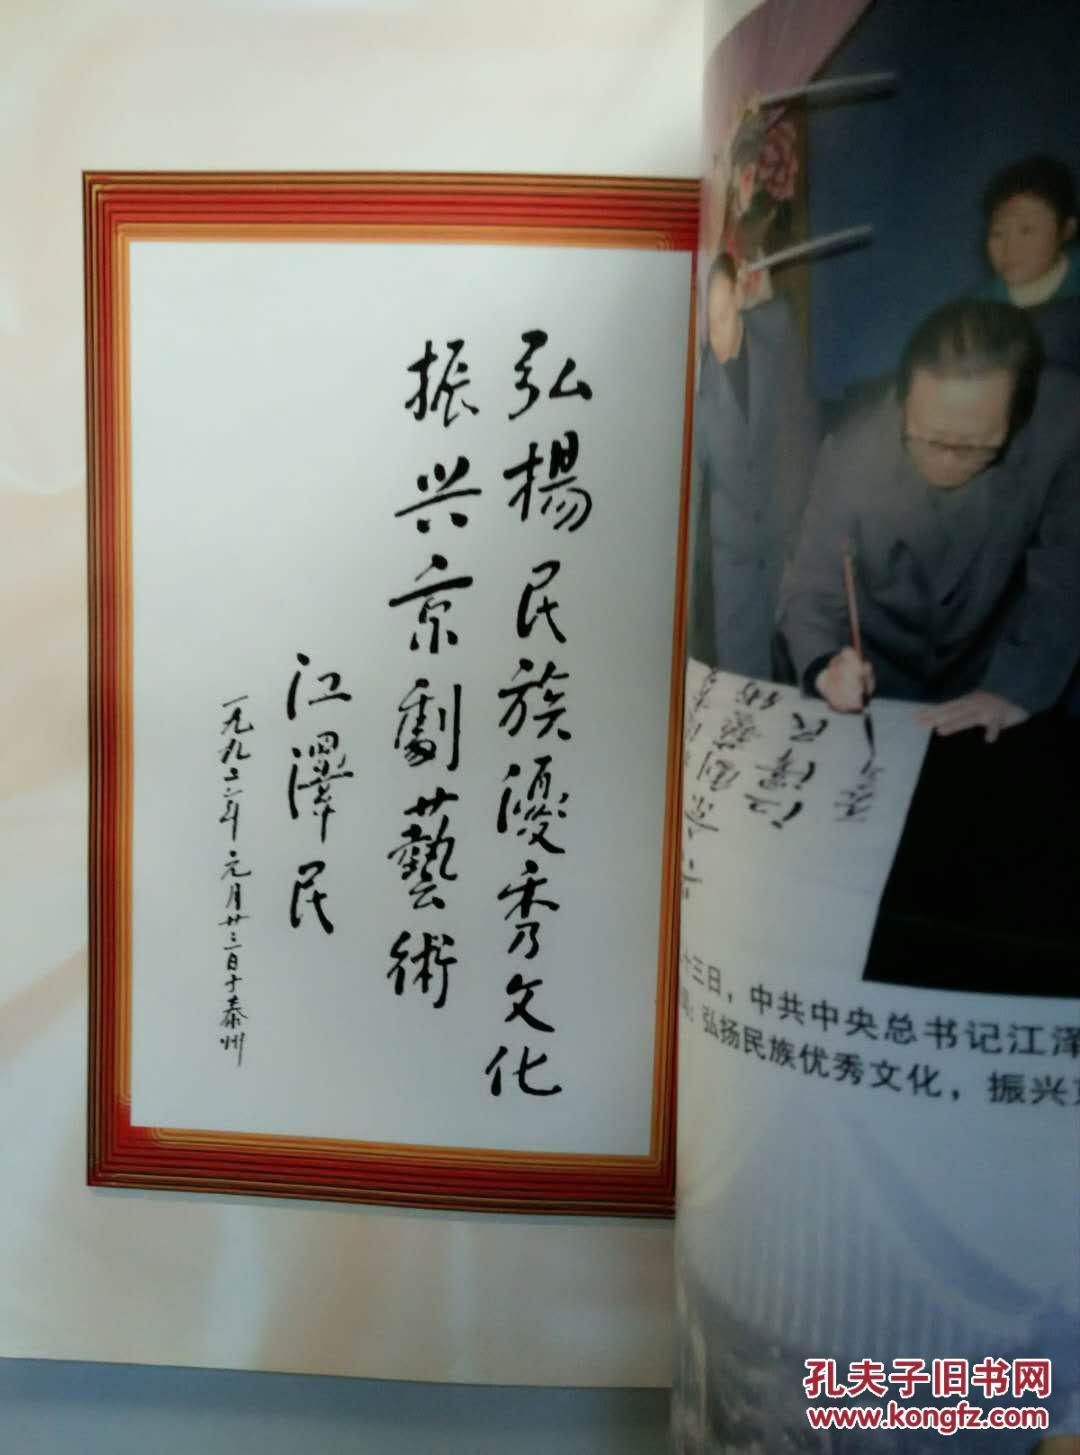 弘揚民族優秀文化
振兴京劇藝術
江澤民
一九九二年元月廿三日于泰州
京劇
藝術
江澤民
十三日，中共中央总书记江泽
：弘扬民族优秀文化，振兴京
孔夫子旧书网
www.kongfz.com